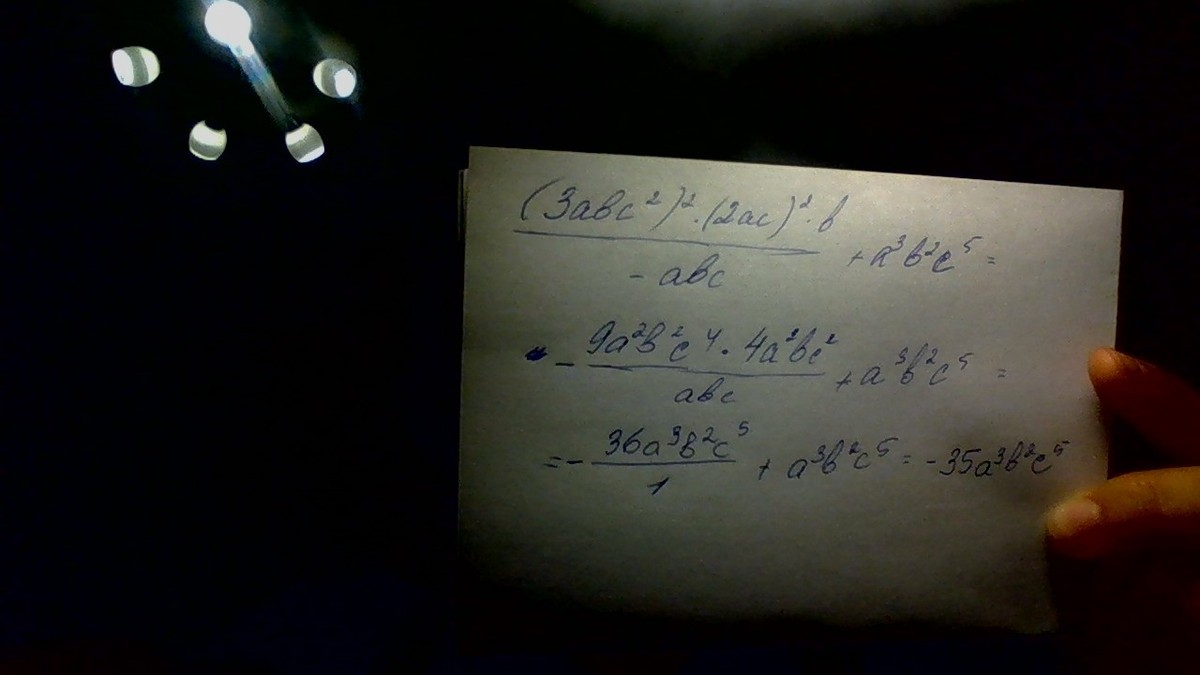 (3abc²)²·(2ac)²·b / -abc + a³b²c⁵ =
- 9a²b²c⁴·4a²bc² / abc + a³b²c⁵ =
= - 36a³b²c⁵ / 1 + a³b²c⁵ = -35a³b²c⁵